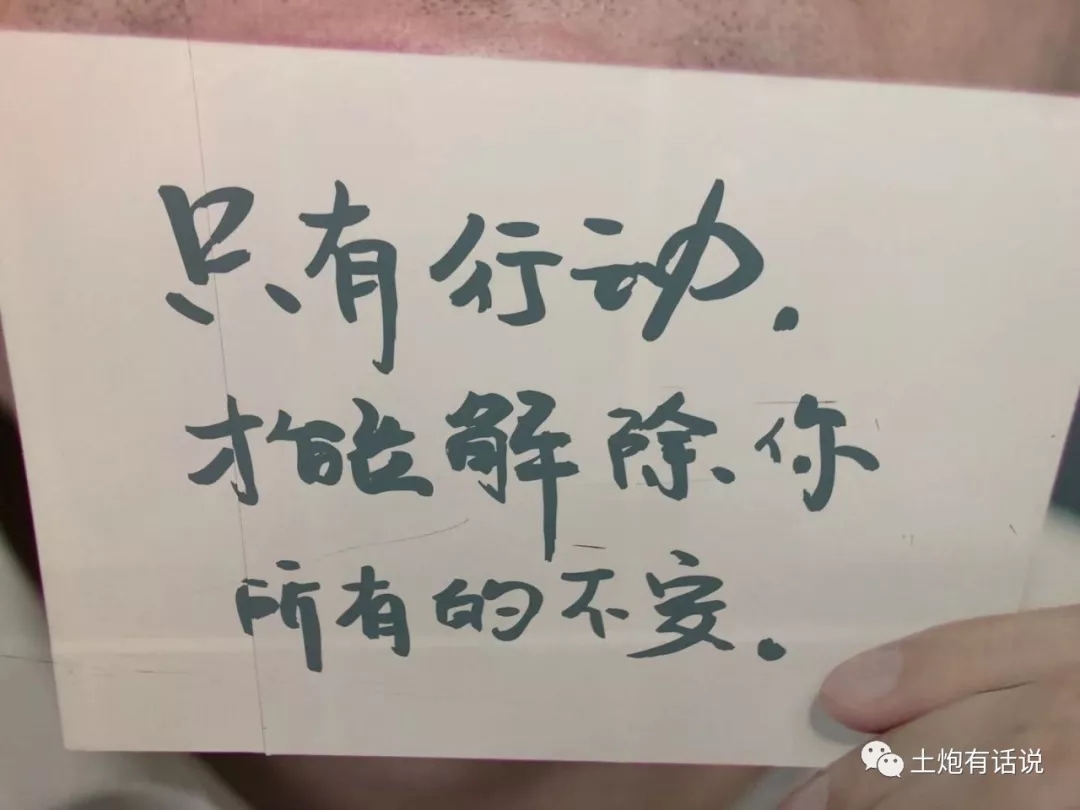 只有行动.
才能解除你
所有的不安.
土炮有话说